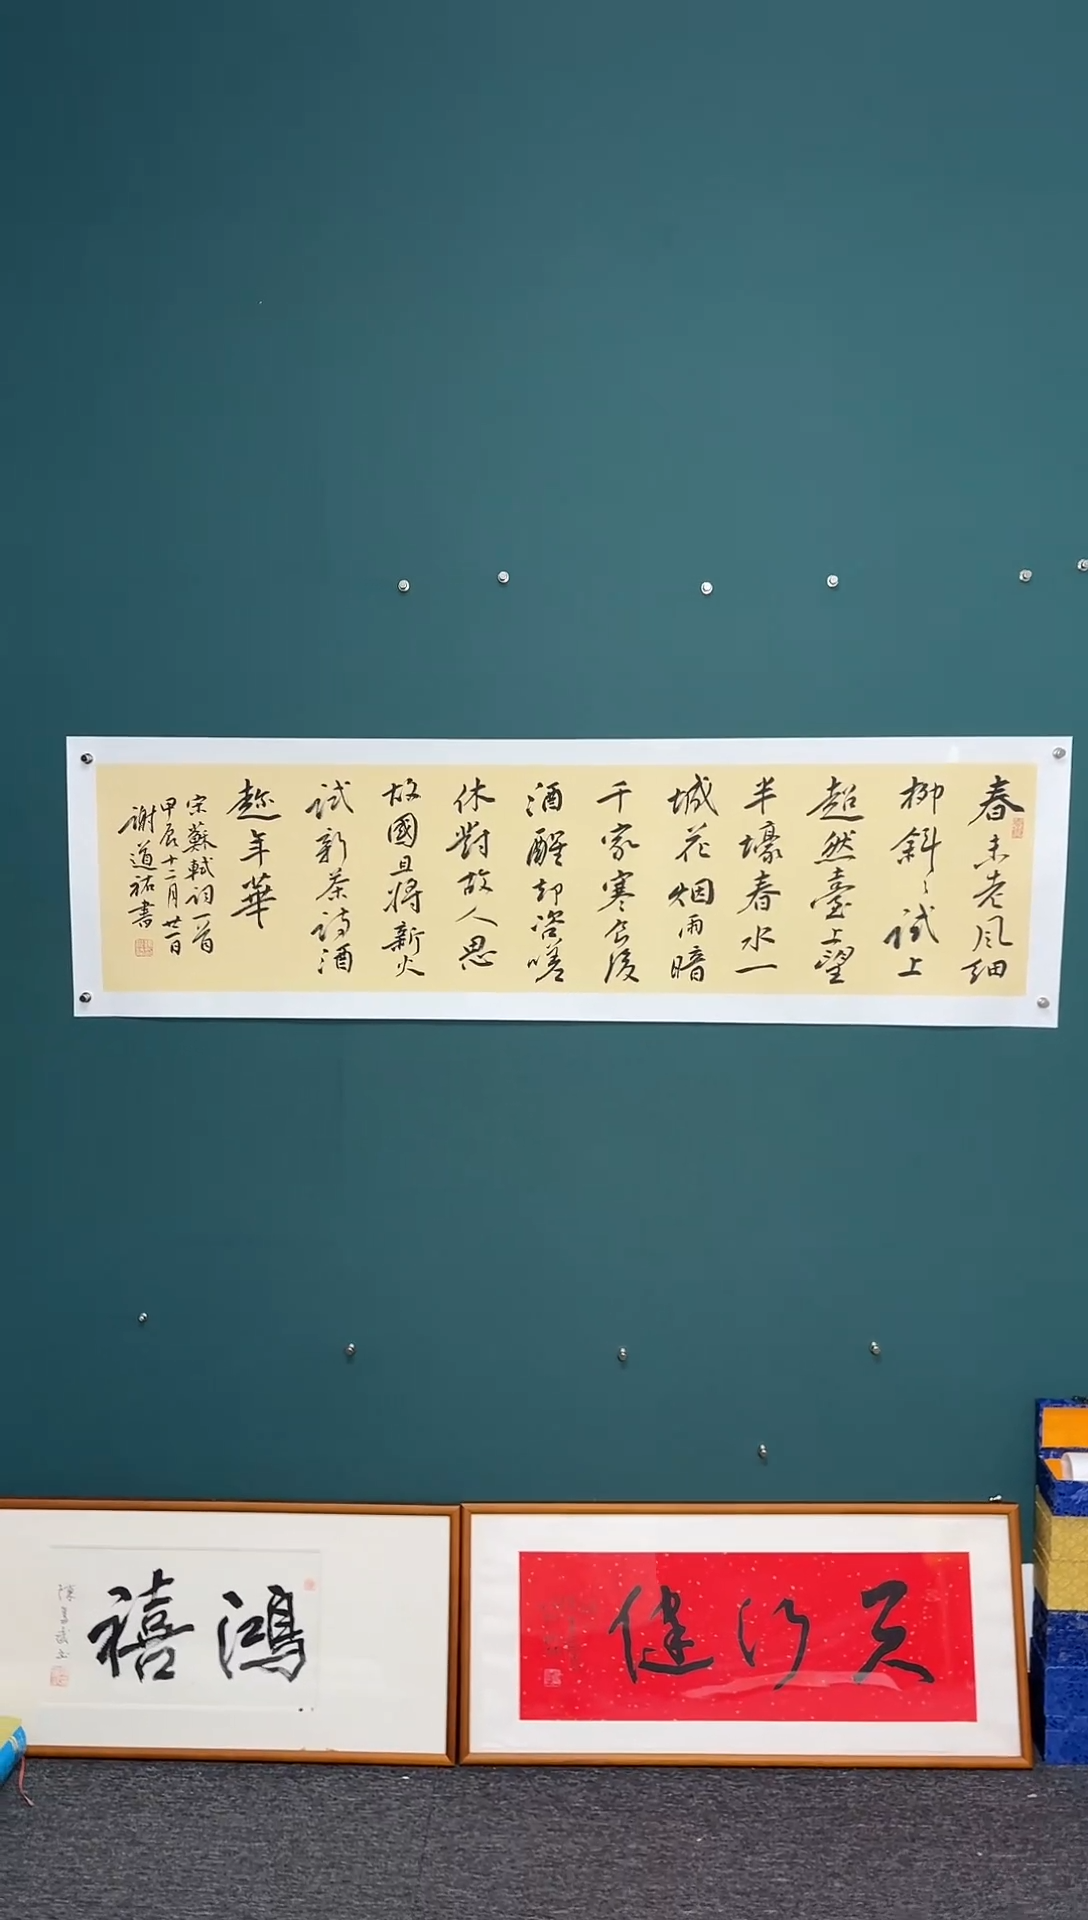 春未老風細
柳斜〻試上
超然臺上望
半壕春水一
城花烟雨暗
千家寒食後
酒醒却咨嗟
休對故人思
故國且將新火
試新茶詩酒
趂年華
宋蘇軾詞一首
甲辰十二月廿一日
謝道祐書
鴻禧
天行健